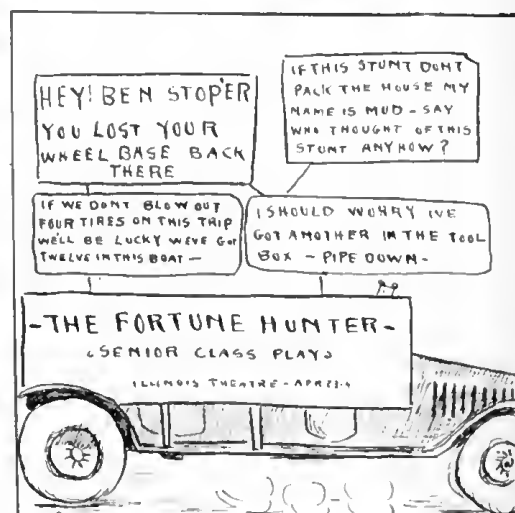 HEY! BEN STOP'ER
YOU LOST YOUR
WHEEL BASE BACK
THERE
IF THIS STUNT DONT
PACK THE HOUSE MY
NAME IS MUD - SAY
WHO THOUGHT OF THIS
STUNT ANYHOW?
IF WE DONT BLOW OUT
FOUR TIRES ON THIS TRIP
WE'LL BE LUCKY WEVE GOT
TWELVE IN THIS BOAT -
I SHOULD WORRY IVE
GOT ANOTHER IN THE TOOL
BOX - PIPE DOWN -
- THE FORTUNE HUNTER -
SENIOR CLASS PLAY
ILLINOIS THEATRE - APR